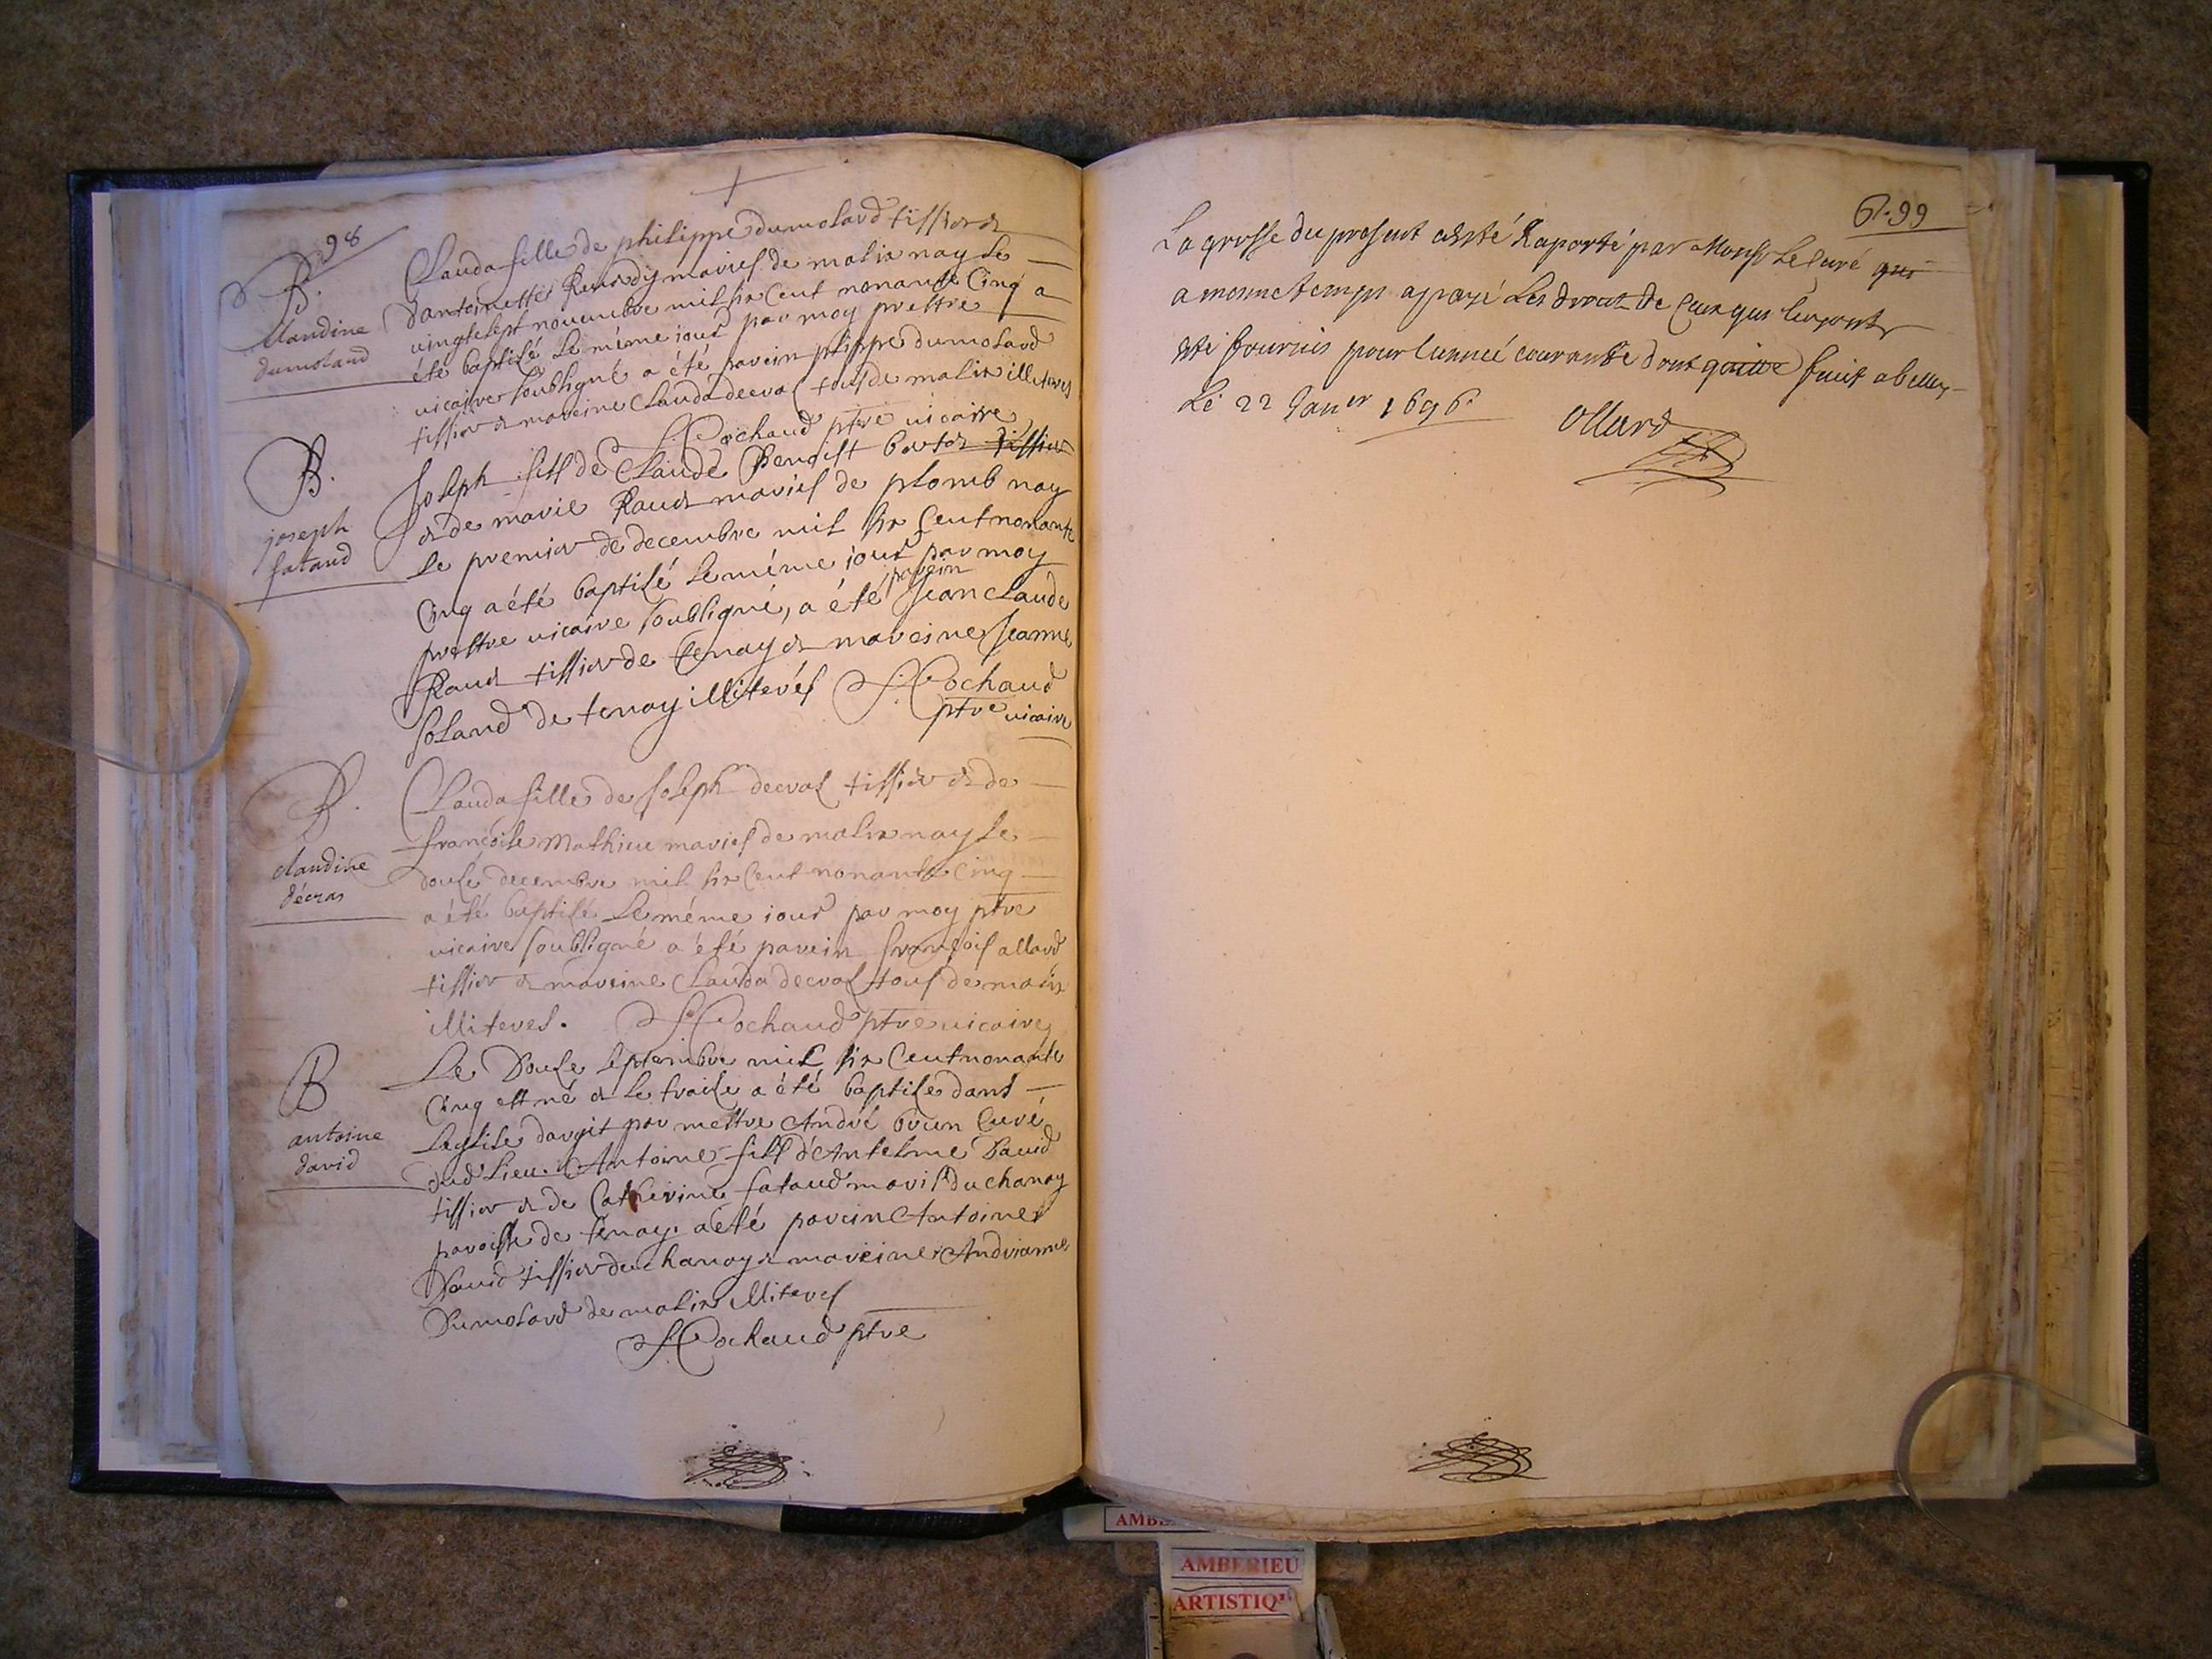 98
B.
claudine
dumoland
Clauda fille de philippe dumolard tissier &
dantoinette mariés de malix nay le
vingtsept novembre mil six cent nonante Cinq a
été baptisé le méme iour par moy prettre
vicaire soubsigné a été parein phippe dumolard
tissier & mareine Clauda decras tous de malix illiteres
Cochaud ptre vicaire
B.
joseph
fataud
Joseph fils de Claude Benoist tissier
& de marie Raud mariés de plomb nay
Le premier de decembre mil six Cent nonante
Cinq a été baptisé le méme iour par moy
parein
prettre vicaire soubsigné, a été Jean Claude
Raud tissier de tenay & mareine Jeanne
soland de tenay illiterés Cochaud
ptre vicaire
B.
claudine
décras
Clauda fille de Joseph decras tissier & de
françoise Mathieu mariés de malix nay le
douse decembre mil six Cent nonante Cinq
a été baptisé le méme iour par moy ptre
vicaire soubsigné a été parein françois allard
tissier & mareine Clauda decras tous de malix
illiteres. Cochaud ptre vicaire
B
antoine
david
Le Douse septembre mil six Cent nonante
Cinq est né & le traise a été baptisé dans
Leglise dargit par mettre André brun Curé
dud lieu. Antoine fils dAntelme David
tissier & de Catherine fataud mariés du chanay
paroisse de tenay. a été parein Antoine
David tissier du chanay & mareine Andrianne
Dumolard de malix illiteres
Cochaud ptre
99
La grosse du present a esté Raporté par Monsr Le Curé qui
a mesme temps a payé Les droits de Ceux qui luy ont
esté fournis pour lannée courante dont quitte fait a belley
Le 22 Janer 1696.
Ollard
AMBERIEU
ARTISTIQ